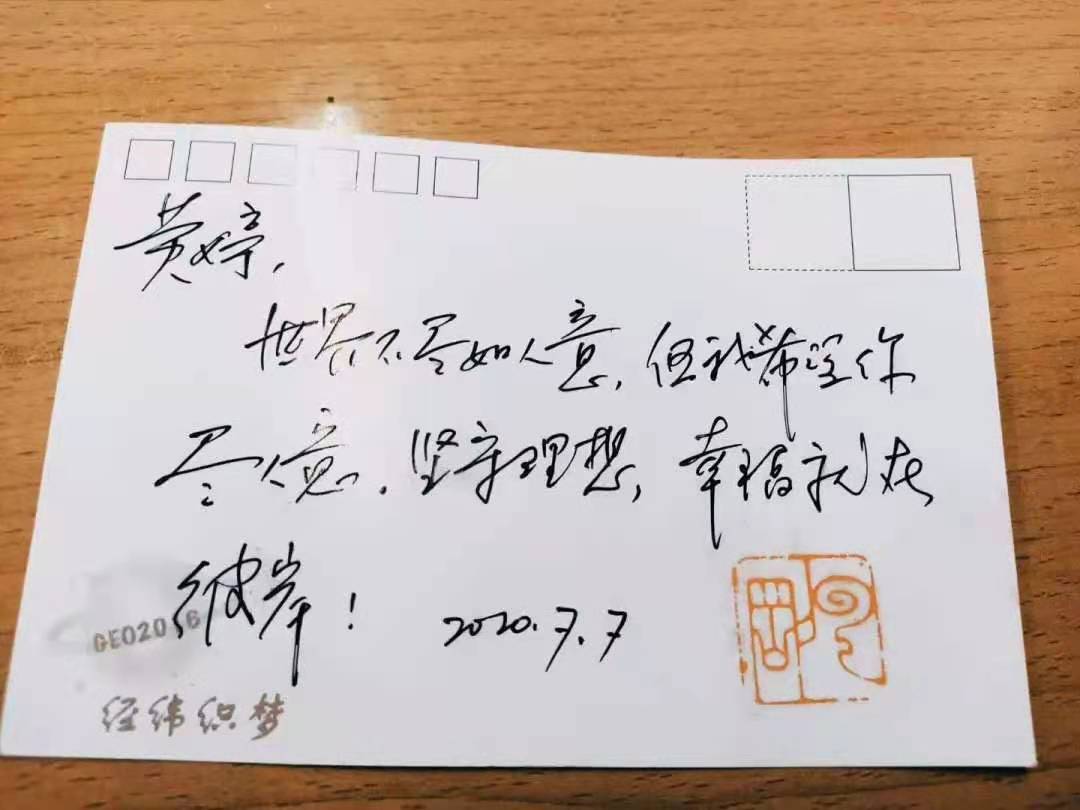 黄婷,
世界不尽如人意,但我希望你
尽人意.坚守理想,幸福就在
彼岸!
2020.7.7
GEO2016
经纬织梦